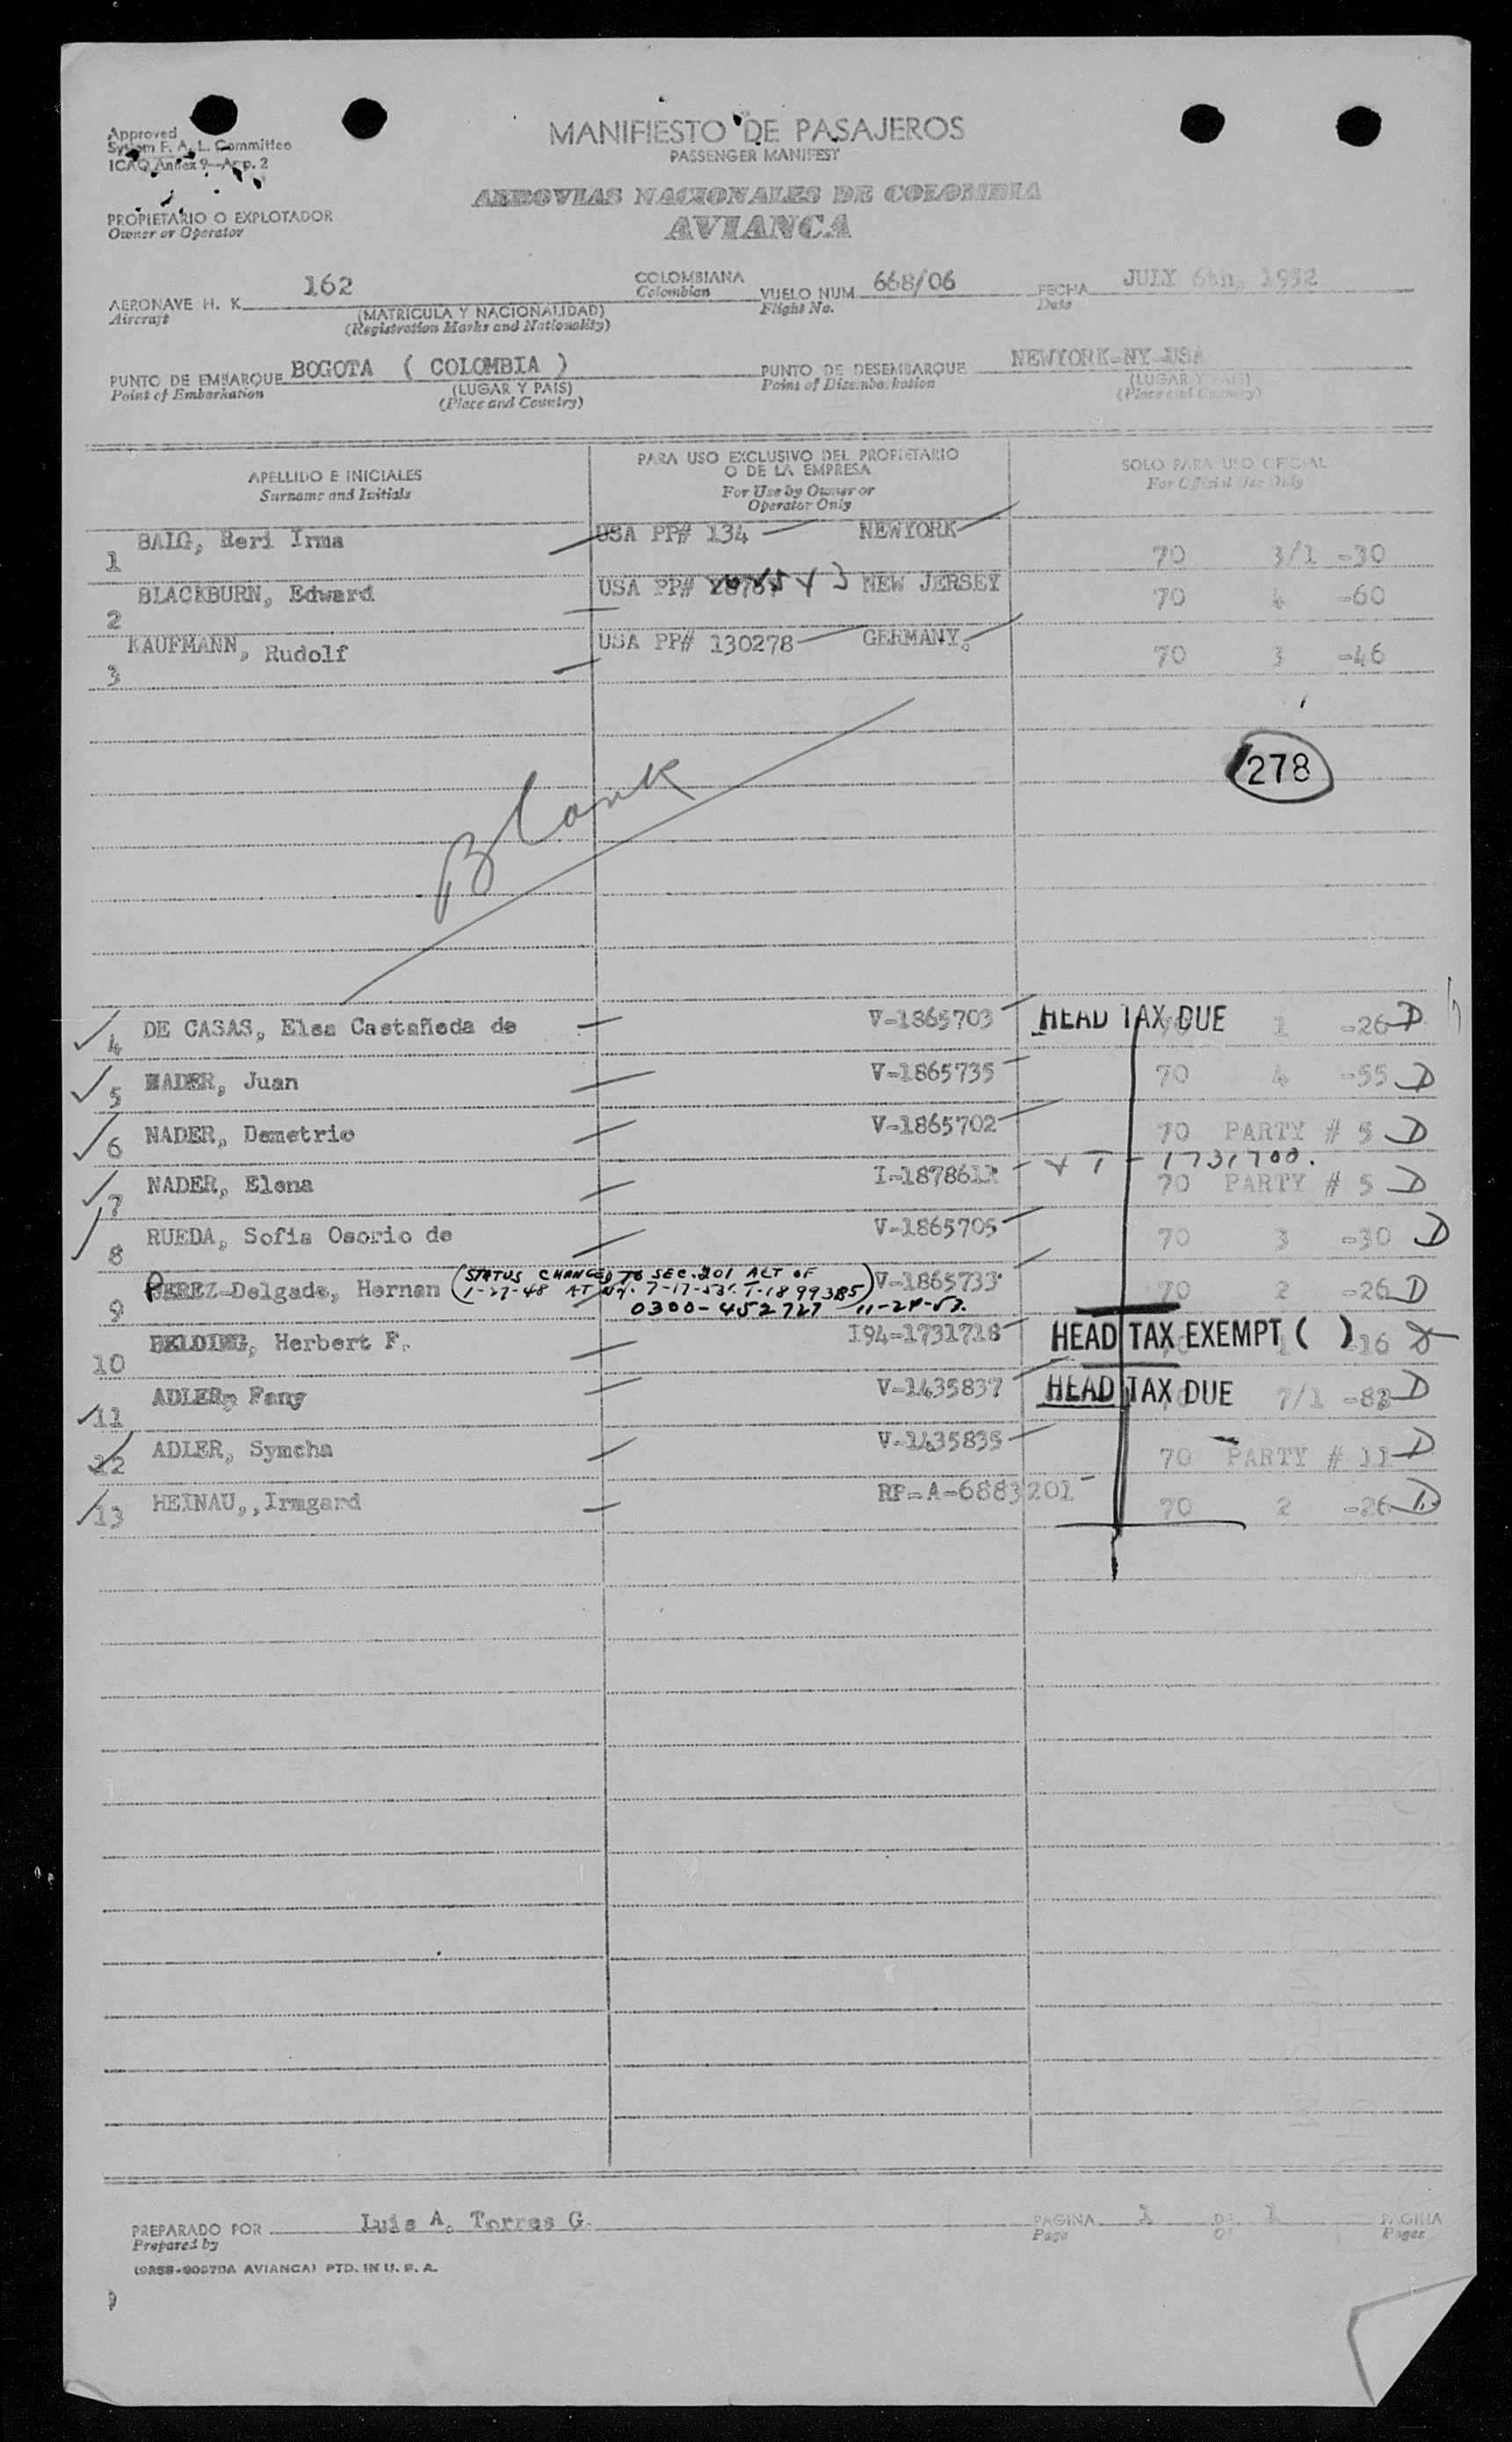 Approved
System F. A. L. Committee
ICAO Annex 9—App. 2
MANIFIESTO DE PASAJEROS
PASSENGER MANIFEST
AEROVIAS NACIONALES DE COLOMBIA
AVIANCA
PROPIETARIO O EXPLOTADOR
Owner or Operator
AERONAVE H. K. 162 COLOMBIANA VUELO NUM 668/06 FECHA JULY 6th, 1952
Aircraft (MATRICULA Y NACIONALIDAD) Colombian Flight No. Date
(Registration Marks and Nationality)
PUNTO DE EMBARQUE BOGOTA ( COLOMBIA ) PUNTO DE DESEMBARQUE NEWYORK-NY-USA
Point of Embarkation (LUGAR Y PAIS) Point of Disembarkation (LUGAR Y PAIS)
(Place and Country) (Place and Country)
APELLIDO E INICIALES PARA USO EXCLUSIVO DEL PROPIETARIO O DE LA EMPRESA SOLO PARA USO OFICIAL
Surname and Initials For Use by Owner or Operator Only For Official Use Only
1 BAIG, Reri Irma USA PP# 134 NEWYORK 70 3/1 -30
2 BLACKBURN, Edward USA PP# NEW JERSEY 70 4 -60
3 KAUFMANN, Rudolf USA PP# 130278 GERMANY. 70 3 -46
278
Blank
4 DE CASAS, Elsa Castañeda de V-1865703 HEAD TAX DUE 1 -26 D
5 NADER, Juan V-1865735 70 4 -55 D
6 NADER, Demetrio V-1865702 70 PARTY # 5 D
7 NADER, Elena I-187861 1731700. 70 PARTY # 5 D
8 RUEDA, Sofia Osorio de V-1865705 70 3 -30 D
9 PEREZ-Delgado, Hernan (STATUS CHANGED TO SEC. 201 ACT OF V-1865733 70 2 -26 D
1-27-48 AT NY. 7-17-53. T-1899385)
0300-452727 11-24-53.
10 BELDING, Herbert F. I94-1731718 HEAD TAX EXEMPT ( ) 1 -16
11 ADLER, Fany V-1435837 HEAD TAX DUE 7/1 -83 D
12 ADLER, Symcha V-1435835 70 PARTY # 11 D
13 HEINAU,,Irmgard RP-A-6883201 70 2 -26 D
PREPARADO POR Luis A. Torres G. PAGINA 1 DE 1 PAGINA
Prepared by Page OF Pages
AVIANCA) PTD. IN U. S. A.